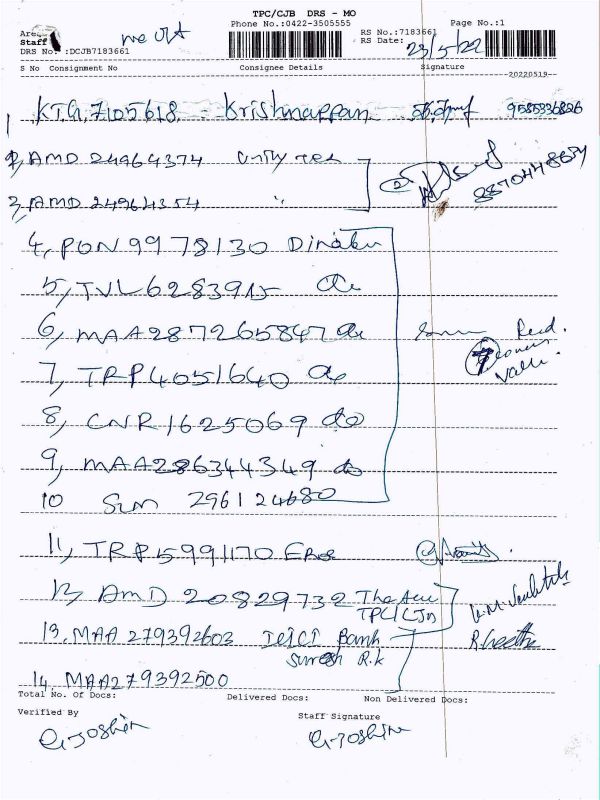 TPC/CJB DRS - MO
Phone No.:0422-3505555 Page No.:1
Area
Staff RS No.:7183661
DRS No. :DCJB7183661 RS Date: 23/5/22
S No Consignment No Consignee Details Signature
20220519
1 KTG.7105618 - Krishnappan 9585336826
2, AMD 24964374 Unity Tex 2
3, AMD 24964354 " 8870448654
4, PON 9978130 Dinakar
5, TVL 6283915 do
6, MAA 287265847 do Recd.
7, TRP 4051640 do 7
8, CNR 1625069 do
9, MAA 286344349 do
10 Sum 296124680
11, TRP 15991170
12, AMD 20829732 The
13. MAA 279392603 ICICI Bank
Suresh R.k
14. MAA 279392500
Total No. Of Docs: Delivered Docs: Non Delivered Docs:
Verified By Staff Signature
G. Joshin G. Joshin